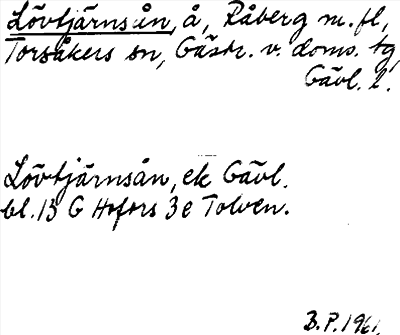 Lövtjärnsån, å, Råberg m. fl,
Torsåkers sn, Gästr. v. doms. tg,
Gävl. l.
Lövtjärnsån, ek Gävl.
bl. 13 G Hofors 3 e Tolven.
B.P. 1961.